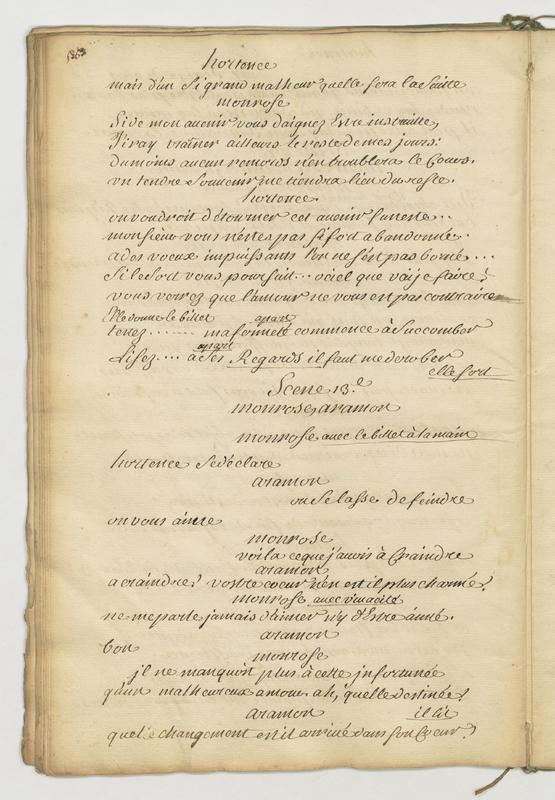 hortence
mais d'un si grand malheur quelle sera la suitte
monrose
Si de mon avenir vous daignez Estre instruitte,
J'iray traîner ailleurs le reste de mes jours:
du moins aucun remords n'en troublera le Cours.
un tendre souvenir me tiendra lieu du reste.
hortence.
on voudroit détourner cet avenir funeste..
monsieur vous n'estes pas si fort abandonné.
a des voeux impuissants l'on ne s'est pas borné...
Si le Sort vous poursuit... o ciel que vais je faire?
vous verrez que l'amour ne vous est pas contraire
Elle donne le billet apart
tenez....... ma fermeté commence à Succomber
apart
Lisez.... à ses Regards il faut me derober
elle sort
Scene 13.e
monrose, aramon
monrose avec le billet à la main
hortence se déclare
aramon
on se lasse de feindre
on vous aime
monrose
voila ce que j'avois à Craindre
aramon
a craindre? vostre coeur n'en est il plus charmé?
monrose avec vivacité
ne me parle jamais d'aimer n'y d'Estre aimé.
aramon
bon
monrose
il ne manquoit plus à cette infortunée
qu'un malheureux amour. ah, quelle destinée!
aramon il lit
quel changement est il arrivé dans son Coeur?